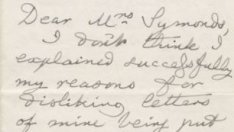 Dear Mrs Symonds,
I don't think I
explained successfully
my reasons for
disliking letters
of mine being put